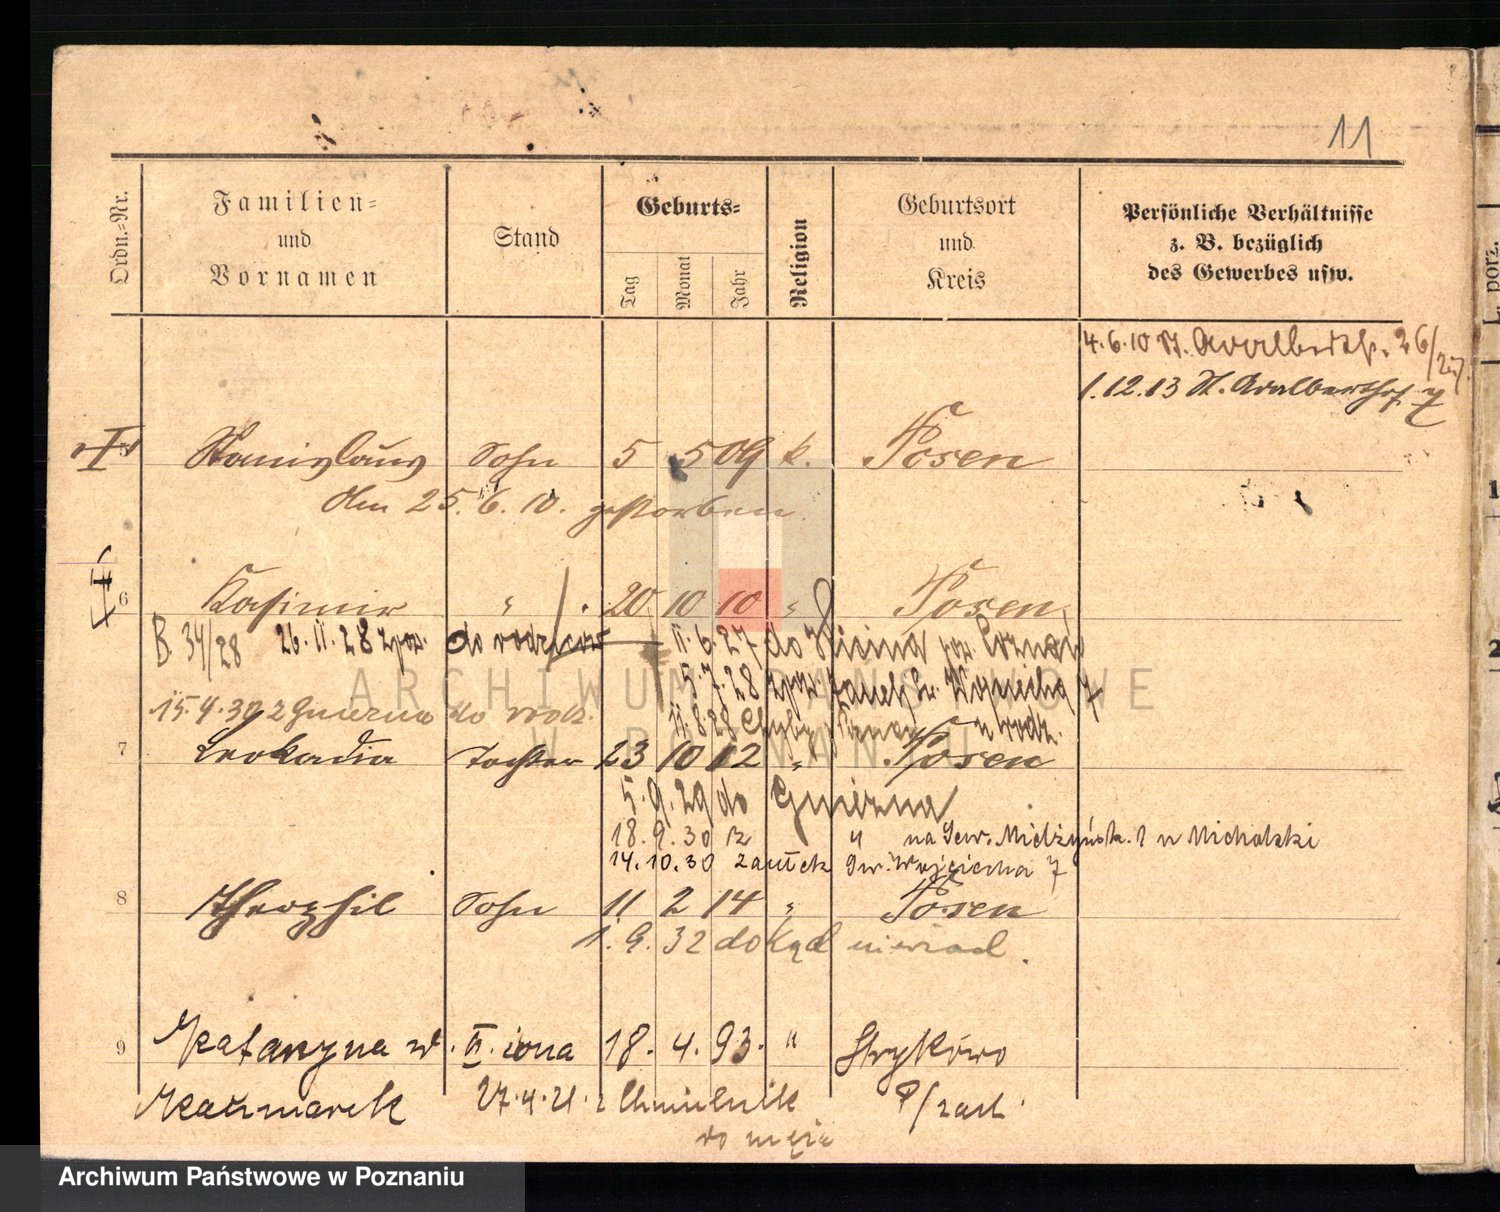 11
Ordn.-Nr.
Familien-
und
Vornamen
Stand
Geburts-
Tag
Monat
Jahr
Religion
Geburtsort
und
Kreis
Persönliche Verhältnisse
z. B. bezüglich
des Gewerbes usw.
4.6.10 St. Adalbertstr. 26/27
1.12.13 St. Adalbertstr. 7
Stanislaus Sohn 5 5 09 k. Posen
Am 25.6.10. gestorben.
6 Kasimir " 20 10 10 " Posen
B. 34/28 26.11.28 do rodziców 11.6.27 do
5.7.28
15.4.30 z Gniezna do rodz. 11.8.28
7 Leokadia Tochter 23 10 12 " Posen
5.9.29 do Gniezna
18.9.30 z " na Sew. Mielżyńsk. 1 u Michalski
14.10.30 zaułek Św. Wojciecha 7
8 Theophil Sohn 11 2 14 " Posen
1.9.32 dokąd niewiad.
9 Katarzyna II. żona 18. 4. 93. " Strykowo
Kaczmarek 27.4.21. z Chmielnik P/zach.
do męża
ARCHIWUM PAŃSTWOWE
W POZNANIU
L. porz.
Archiwum Państwowe w Poznaniu